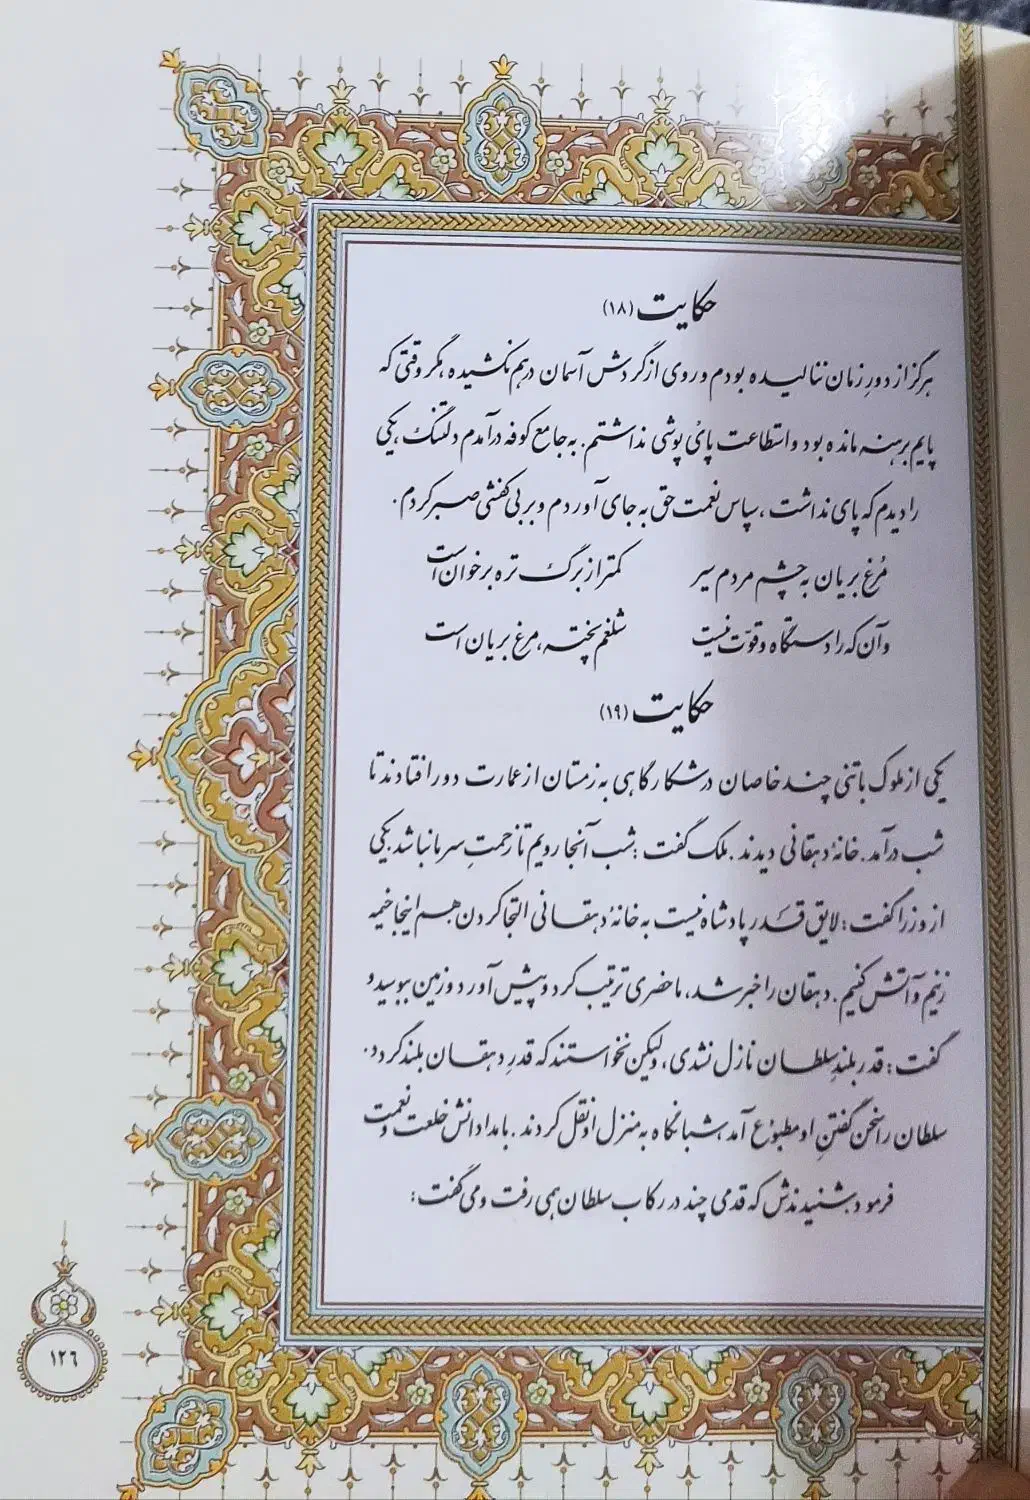 حکایت (۱۸)
هرگز از دورِ زمان ننالیده بودم و روی از گردش آسمان درهم نکشیده، مگر وقتی که
پایم برهنه مانده بود و استطاعت پای‌پوشی نداشتم. به جامع کوفه درآمدم دلتنگ، یکی
را دیدم که پای نداشت، سپاس نعمت حق به جای آوردم و بر بی‌کفشی صبر کردم.
مُرغ بریان به چشم مردم سیر کمتر از برگ تره بر خوان است
وآن که را دستگاه و قوّت نیست شلغم پخته، مرغ بریان است
حکایت (۱۹)
یکی از ملوک با تنی چند خاصان در شکارگاهی به زمستان از عمارت دور افتادند تا
شب درآمد. خانهٔ دهقانی دیدند. ملک گفت: شب آنجا رویم تا زحمتِ سرما نباشد. یکی
از وزرا گفت: لایق قدر پادشاه نیست به خانهٔ دهقانی التجا کردن هم اینجا خیمه
زنیم و آتش کنیم. دهقان را خبر شد، ماحضری ترتیب کرد و پیش آورد و زمین ببوسید و
گفت: قدر بلندِ سلطان نازل نشدی، ولیکن نخواستند که قدرِ دهقان بلند گردد.
سلطان را سخن گفتنِ او مطبوع آمد، شبانگاه به منزل او نقل کردند. بامدادانش خلعت و نعمت
فرمود. شنیدندش که قدمی چند در رکاب سلطان همی رفت و می‌گفت:
۱۲۶